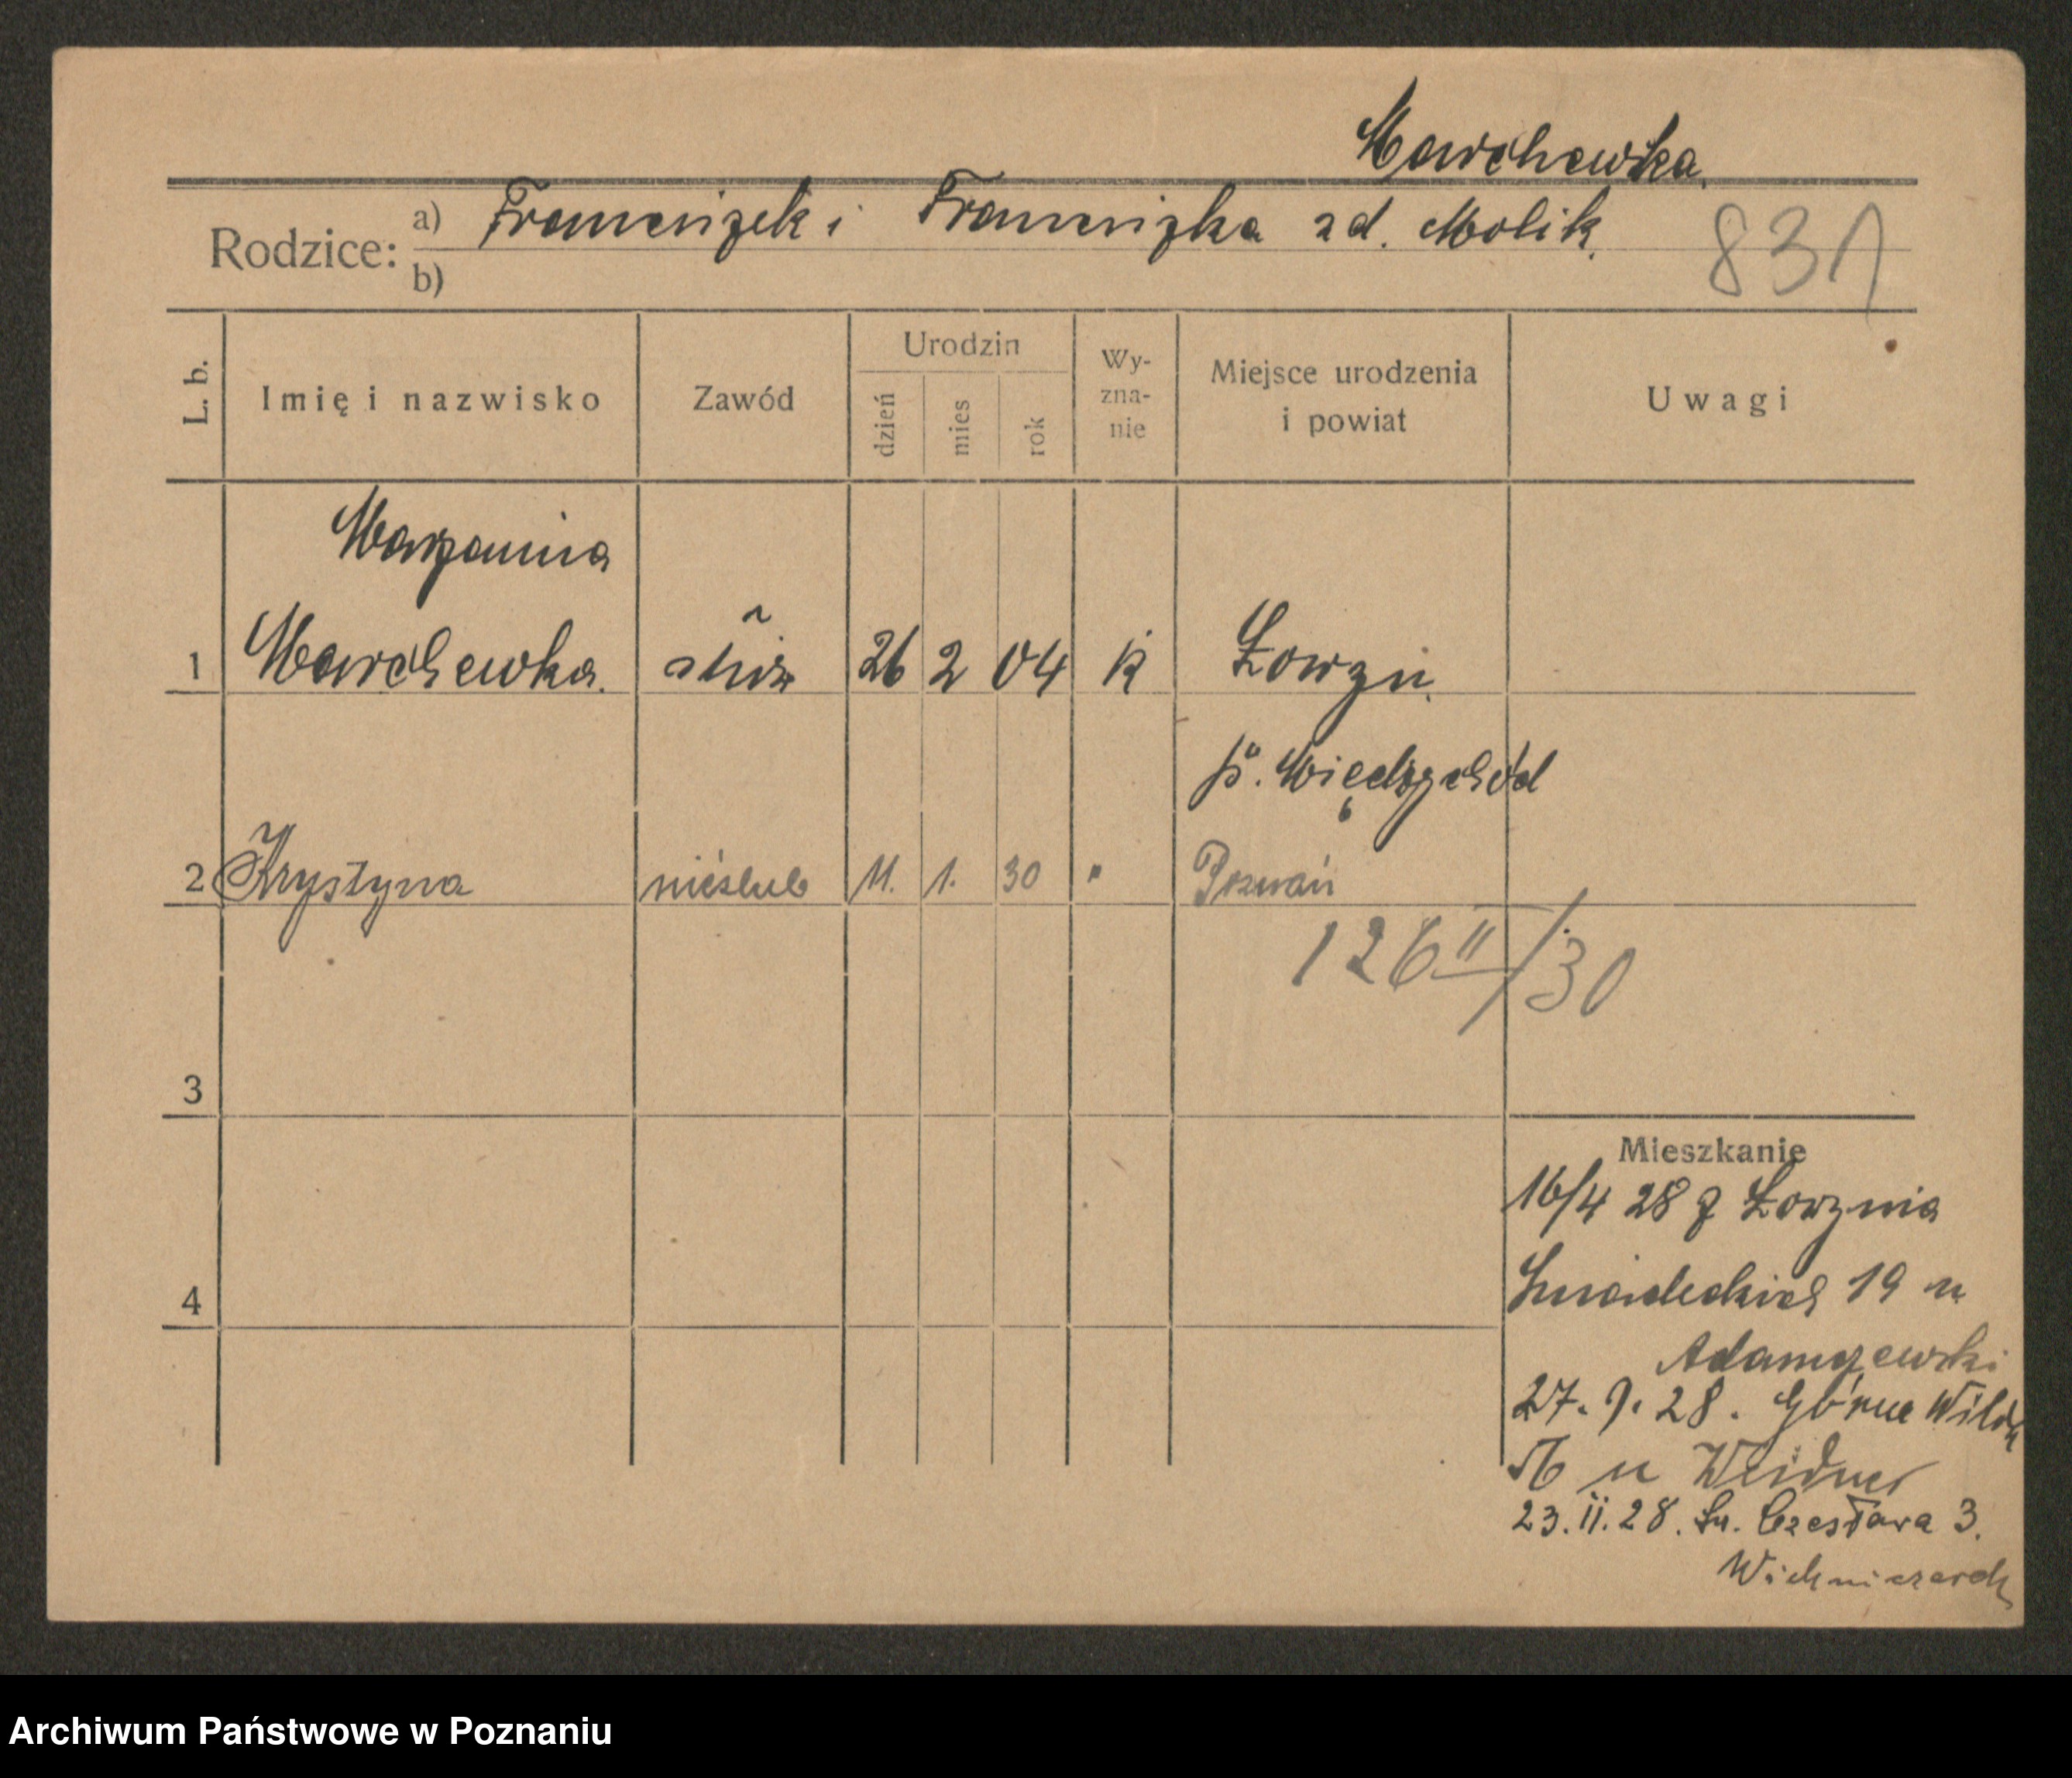 Marchewka.
Rodzice: a) Franciszek i Franciszka zd. Molik.
b)
831
L. b. Imię i nazwisko Zawód Urodzin dzień mies rok Wy-zna-nie Miejsce urodzenia i powiat Uwagi
Marzanna
1 Marchewka. służ 26 2 04 k Łowyń.
p. Międzychód
2 Krystyna nieślub 11. 1. 30 " Poznań
126 II/30
3
Mieszkanie
16/4 28 z Łowynia
4 Śniadeckich 19 u
Adamczewski
27. 9. 28. Górna Wilda
u Weidner
23. II. 28. Św. Czesława 3.
Wichniarek
Archiwum Państwowe w Poznaniu